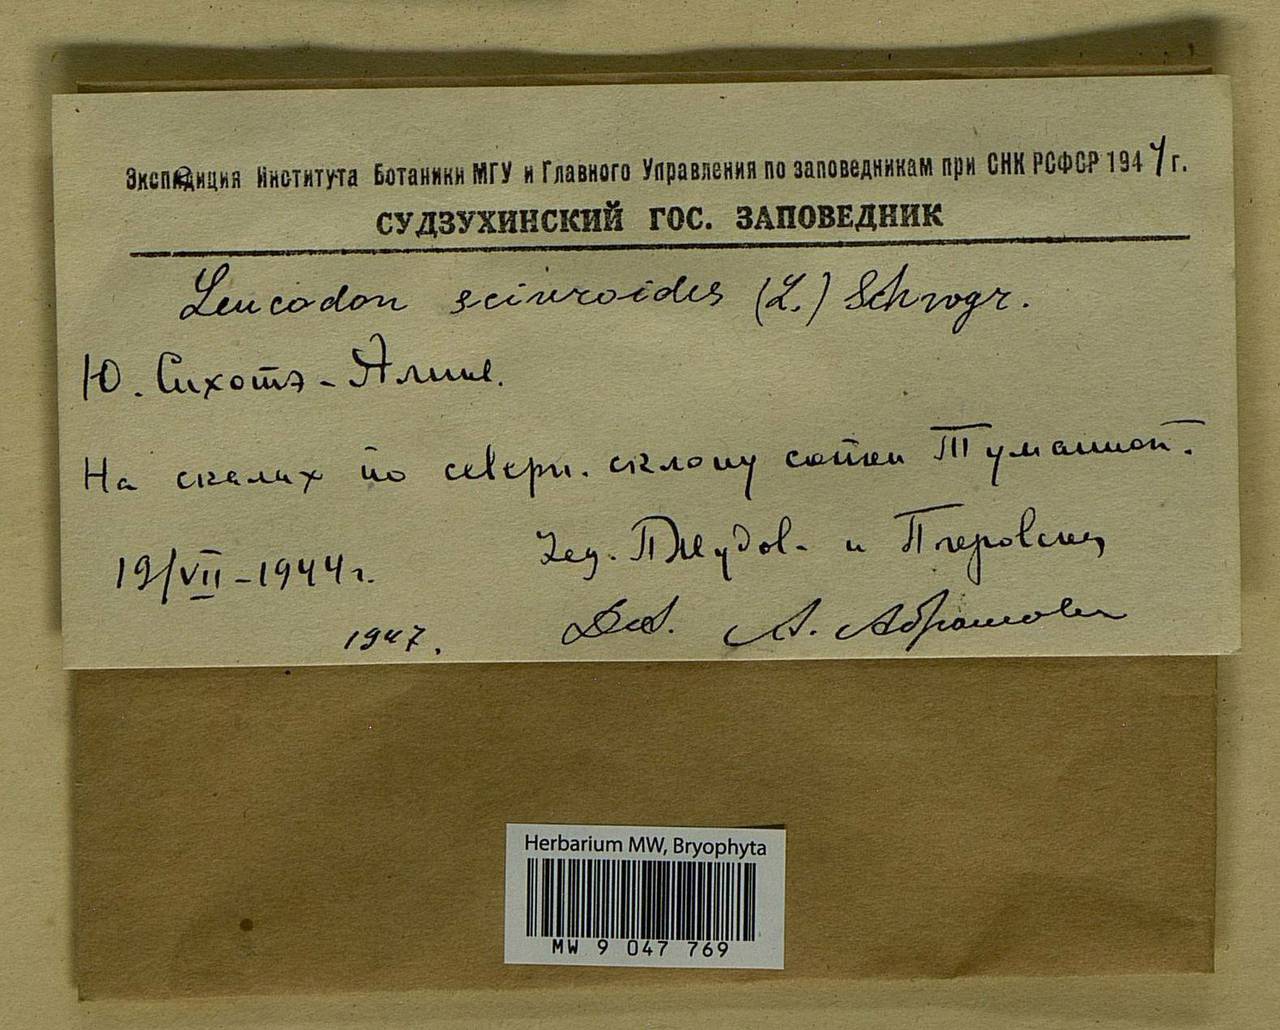 Экспедиция Института Ботаники МГУ и Главного Управления по заповедникам при СНК РСФСР 1944 г.
СУДЗУХИНСКИЙ ГОС. ЗАПОВЕДНИК
Leucodon sciuroides (L.) Schwgr.
Ю. Сихотэ-Алинь.
На скалах по северн. склону сопки Туманной.
19/VII-1944 г.
и
1947. Det. А. Абрамова
Herbarium MW, Bryophyta
MW 9 047 769